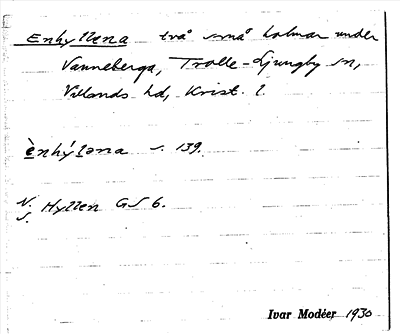 Enhyllena två små holmar under
Vanneberga, Trolle-Ljungby sn,
Villands hd, Krist. l.
ènhýləna s. 139.
N.
S. Hyllen GS 6.
Ivar Modéer 1930